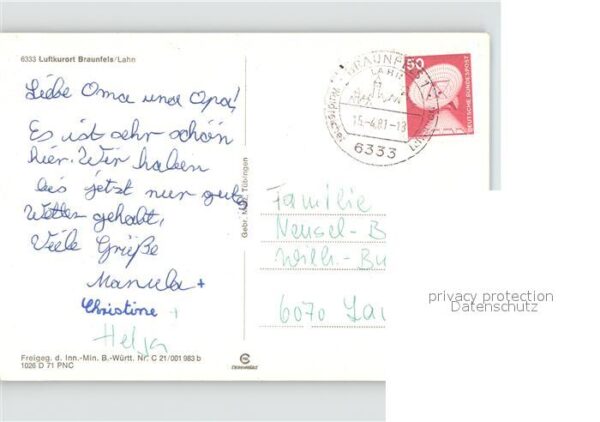 6333 Luftkurort Braunfels/Lahn
Liebe Oma und Opa!
Es ist sehr schön
hier. Wir haben
bis jetzt nur gutes
Wetter gehabt.
Viele Grüße
Manuela +
Christine +
Helga
Freigeg. d. Inn.-Min. B.-Württ. Nr. C 21/001 983 b
1026 D 71 PNC
Gebr. Metz, Tübingen
BRAUNFELS 1
LAHR
15.-4.81-18
6333
50
DEUTSCHE BUNDESPOST
Familie
Neusel-B
Wilh.-Bu
6070 Lan
privacy protection
Datenschutz